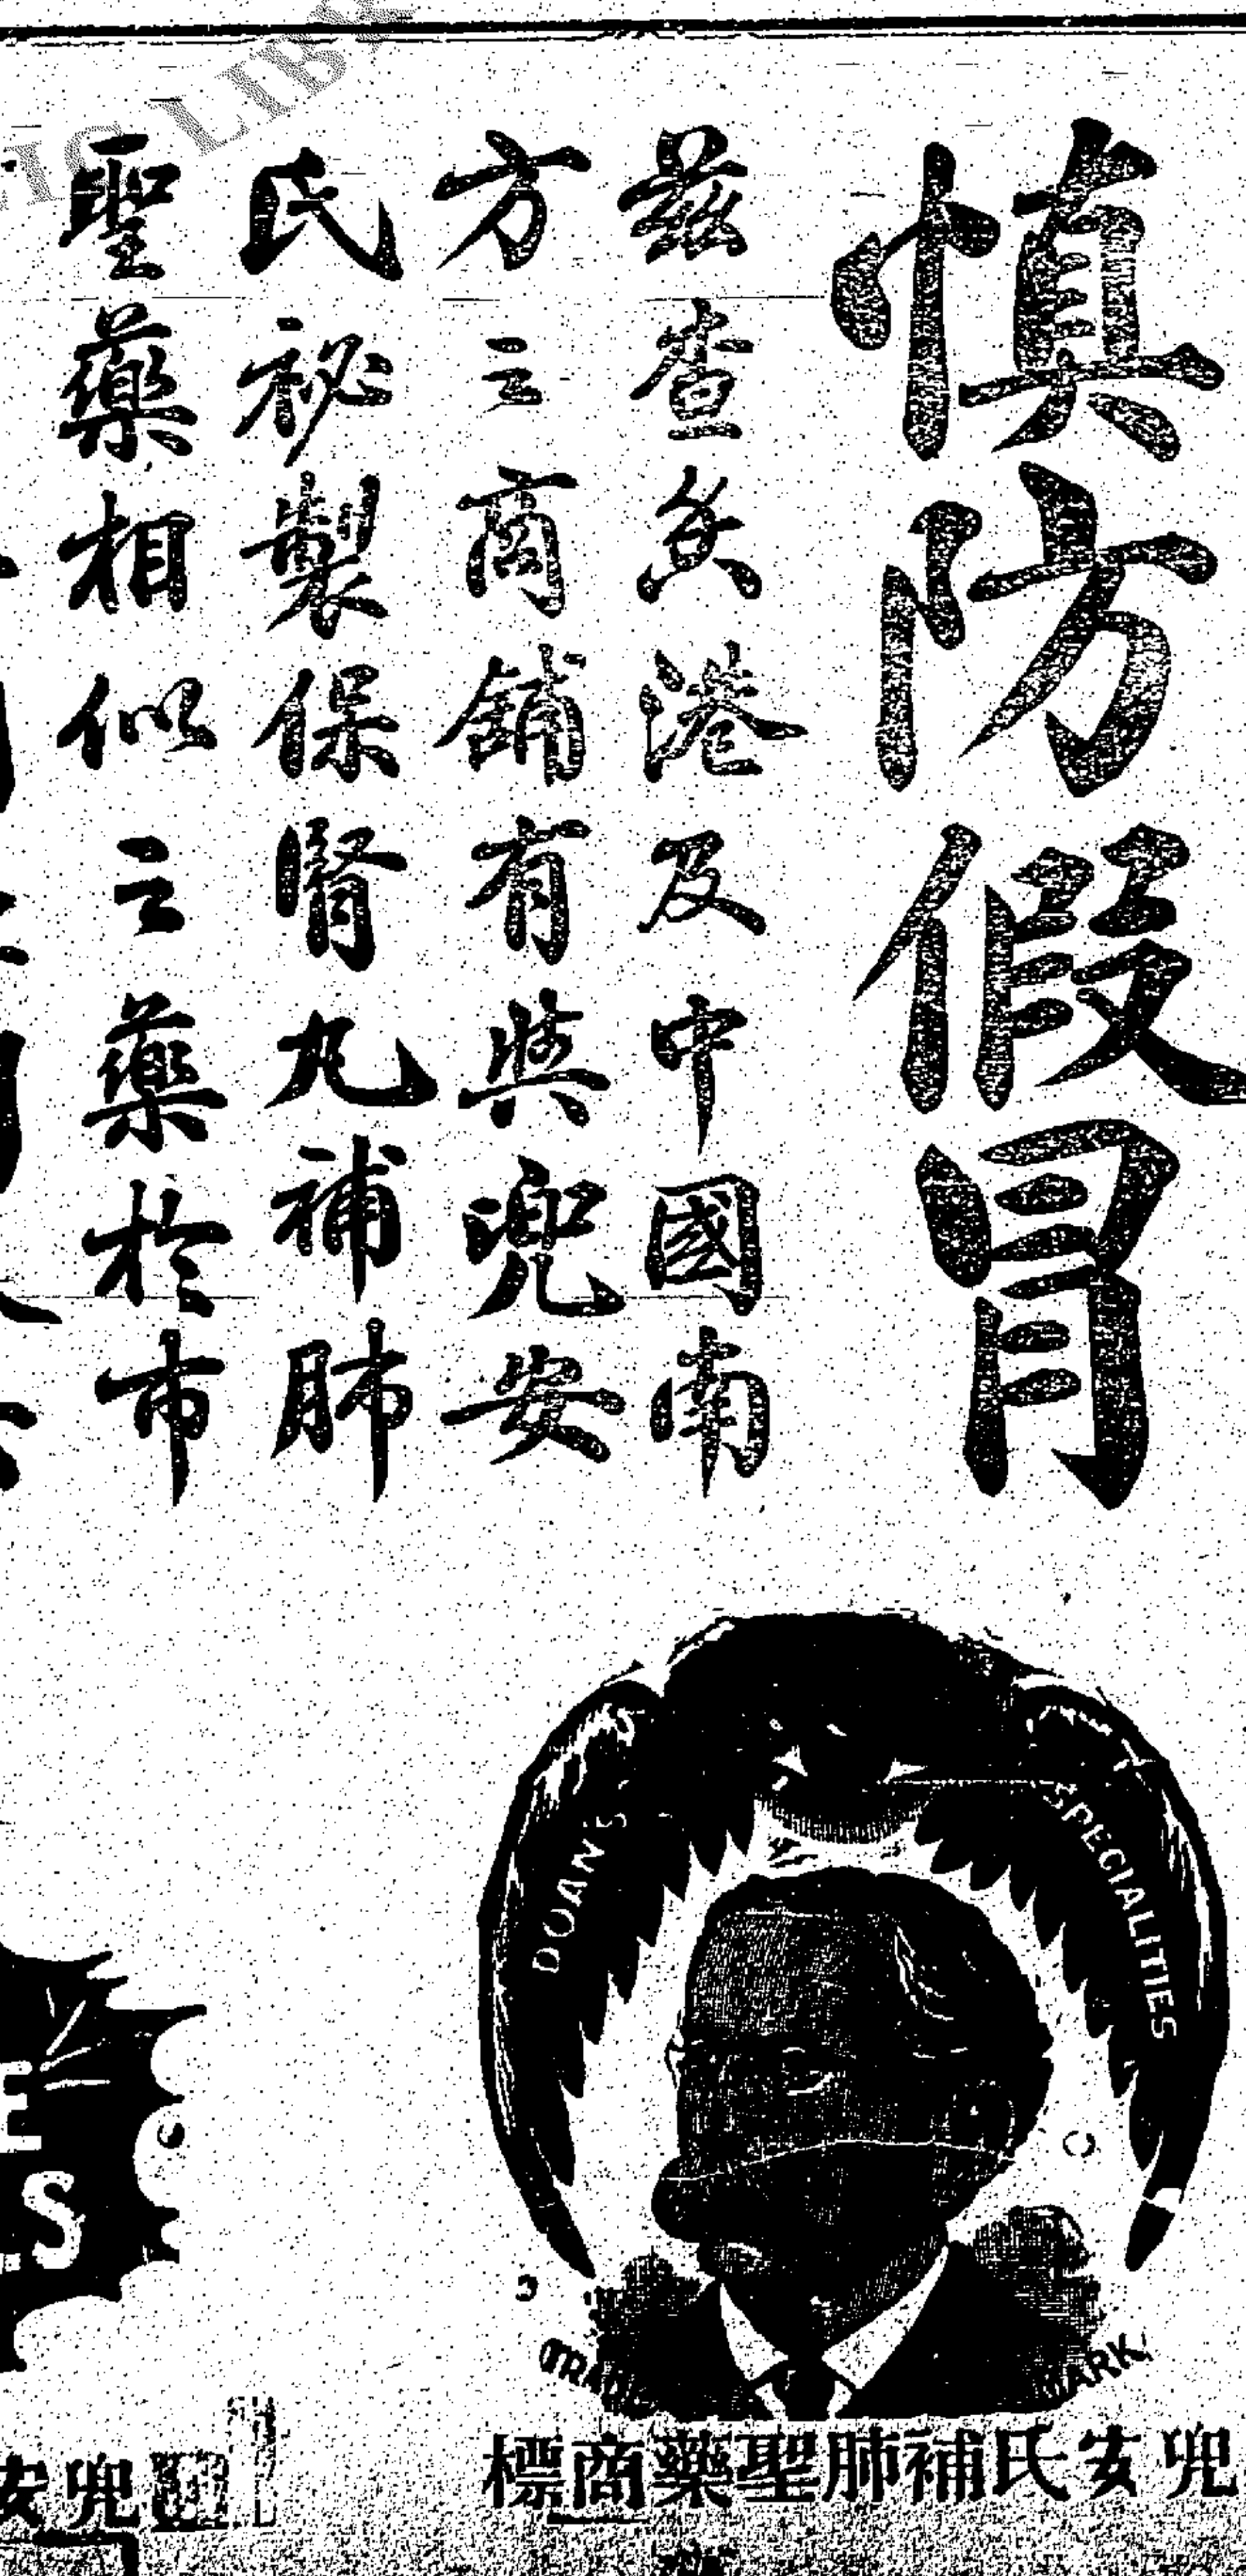 慎防假冒
茲查香港及中國南
方之商舖有與兜安
氏祕製保腎丸補肺
聖藥相似之藥於市
DOAN'S SPECIALITIES
TRADE MARK
兜安氏補肺聖藥商標
兜安